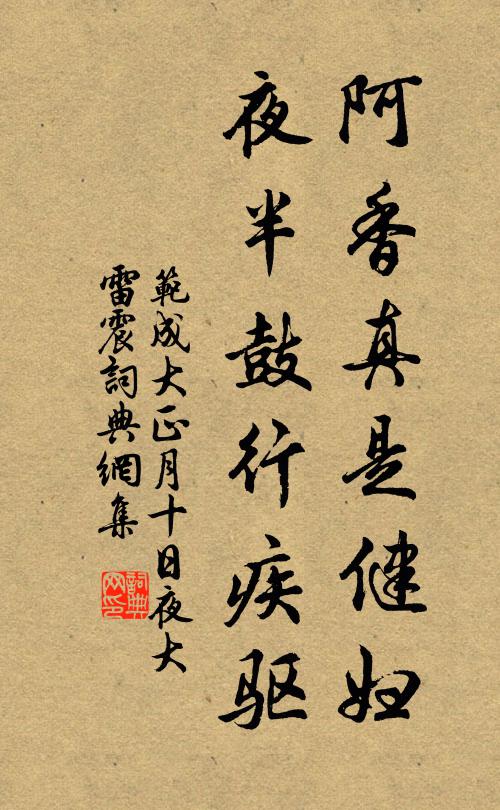 阿香真是健妇
夜半鼓行疾驱
範成大正月十日夜大
雷震詞典網集
詞典
网印